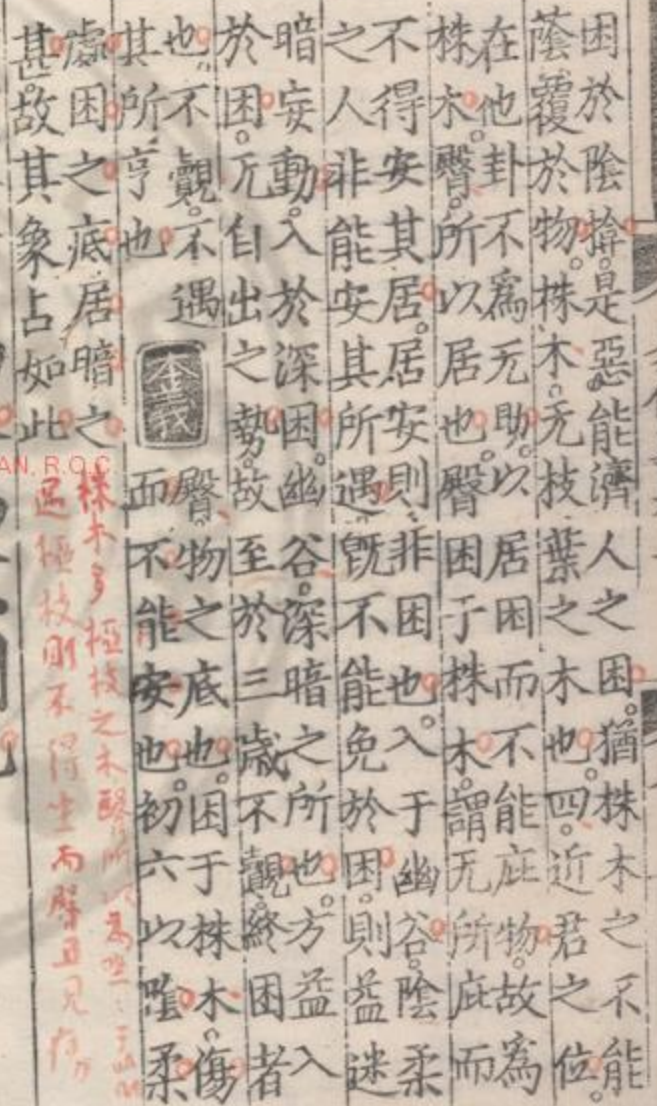 困於陰揜是惡能濟人之困猶株木之不能
蔭覆於物株木无枝葉之木也四近君之位
在他卦不爲无助以居困而不能庇物故爲
株木臀所以居也臀困于株木謂无所庇而
不得安其居居安則非困也入于幽谷陰柔
之人非能安其所遇旣不能免於困則益迷
暗妄動入於深困幽谷深暗之所也方益入
於困无自出之勢故至於三歲不覿終困者
也不覿不遇
其所亨也
本義
臀物之底也困于株木傷
而不能安也初六以陰柔
處困之底居暗之
甚故其象占如此
株木多極枝之木臀所以爲坐
極枝則不得坐而臀且見
AN, R.O.C.